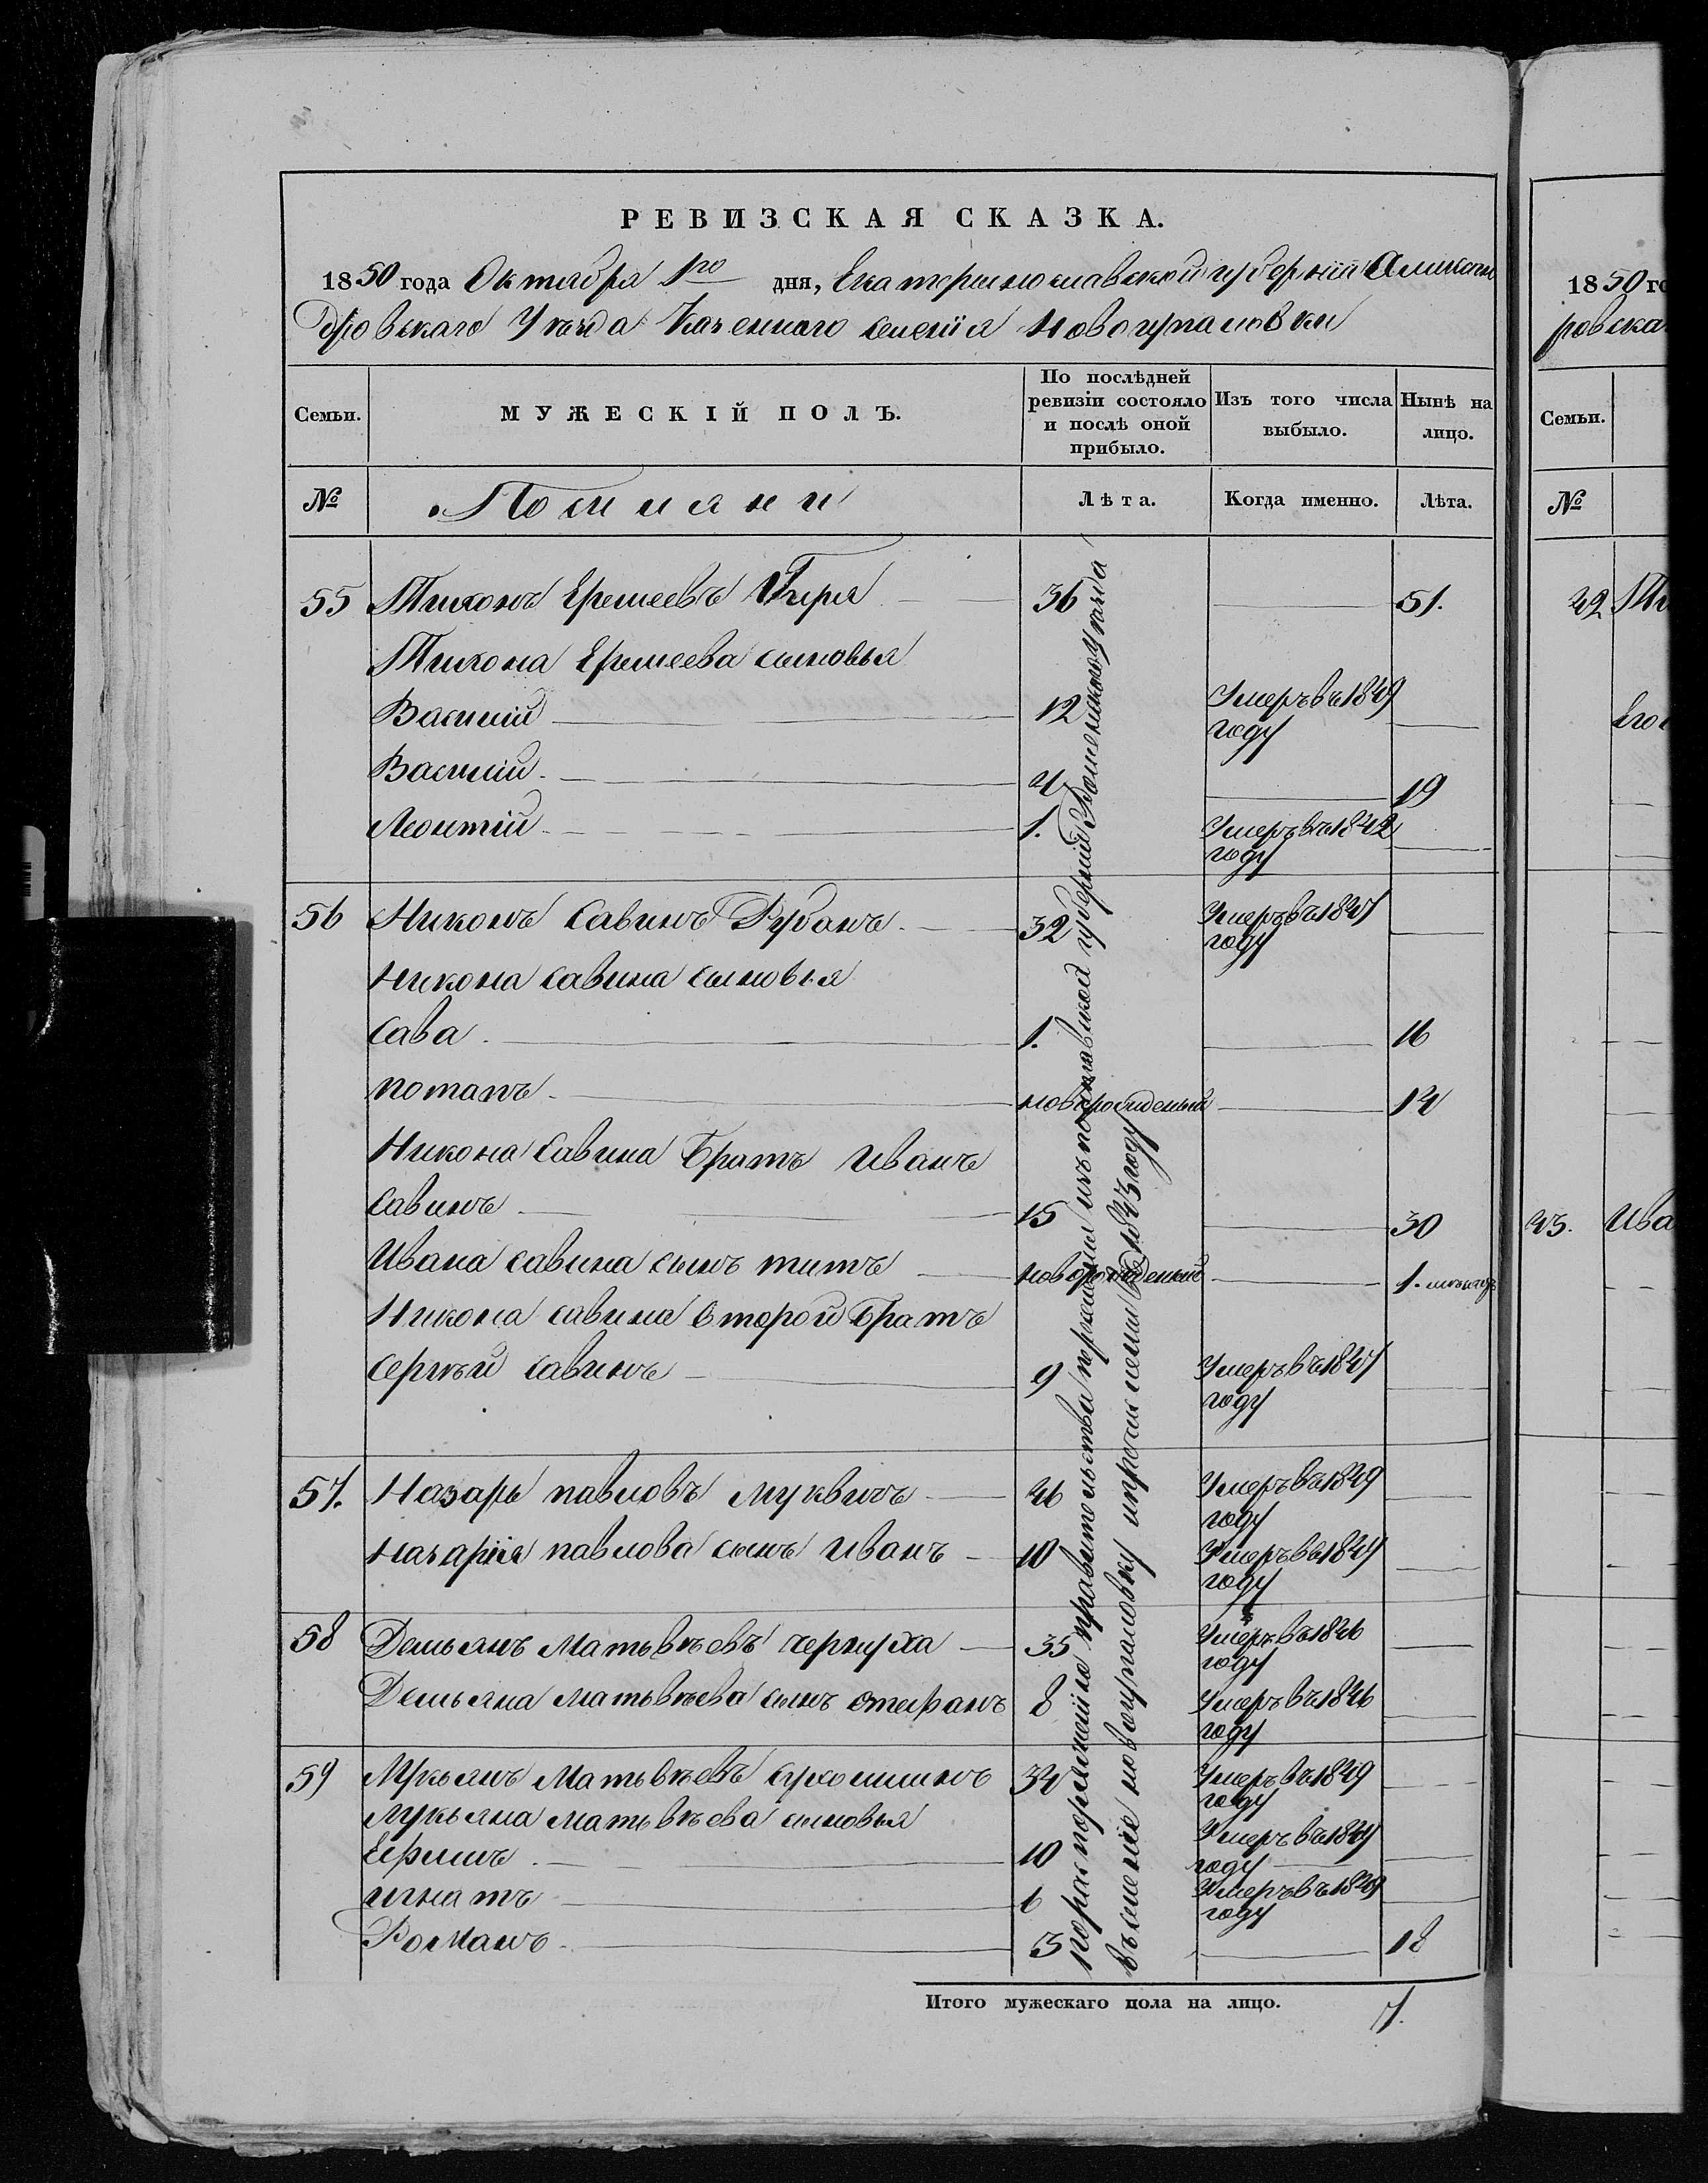 РЕВИЗСКАЯ СКАЗКА.
1850 года Октября 1го дня, Екатеринославской губерніи Алексан
дровскаго Уѣзда Казеннаго селенія Новогупаловки
Семьи.
МУЖЕСКІЙ ПОЛЪ.
По послѣдней ревизіи состояло и послѣ оной прибыло.
Изъ того числа выбыло.
Нынѣ на лицо.
№
Лѣта.
Когда именно.
Лѣта.
55 Тихонъ Еремеевъ 36 51.
Тихона Еремеева сыновья
Василій 12 Умеръ въ 1849 году
Василій 4 19
Леонтій 1. Умеръ въ 1842 году
56 Никонъ Савинъ Рубанъ 32 Умеръ въ 1847 году
Никона Савина сыновья
Сава 1. 16
Потапъ новорожденный 14
Никона Савина Братъ Иванъ
Савинъ 15 30
Ивана Савина сынъ Титъ новорожденный 1. месяцъ
Никона Савина Второй Братъ
Сергѣй Савинъ 9 Умеръ въ 1847 году
57. Назаръ Павловъ 46 Умеръ въ 1849 году
Назарія Павлова сынъ Иванъ 10 Умеръ въ 1849 году
58 Демьянъ Матьвѣевъ Чернуха 35 Умеръ въ 1846 году
Демьяна Матьвѣева сынъ Стефанъ 8 Умеръ въ 1846 году
59 Лукьянъ Матьвѣевъ Сухомлинъ 34 Умеръ въ 1849 году
Лукьяна Матьвѣева сыновья
Ефимъ 10 Умеръ въ 1849 году
Игнатъ 6 Умеръ въ 1849 году
Романъ 3 18
правительства изъ Полтавской губерніи уѣзда
въ селеніе Новогупаловку и причислены въ 1843 году
Итого мужескаго пола на лицо. 7.
1850 го
ровска
Семьи.
№
42 Ти
Его
43. Ива